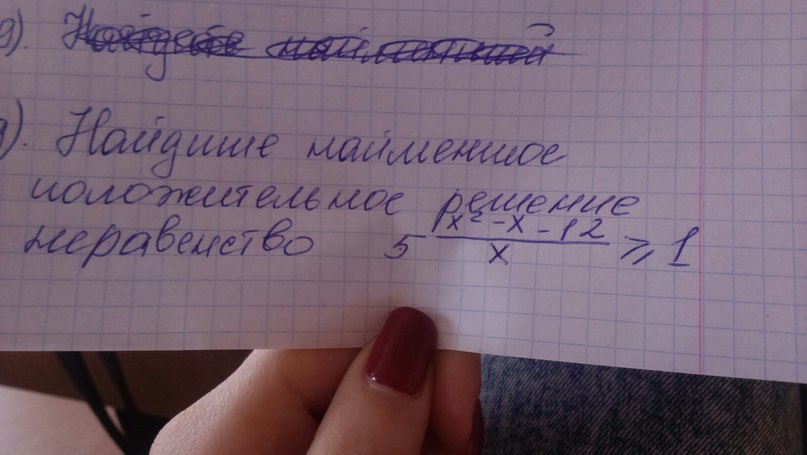 9). Найдите наименший
9). Найдите найменшое
положительное решение
неравенство 5^((x²-x-12)/x) ⩾ 1